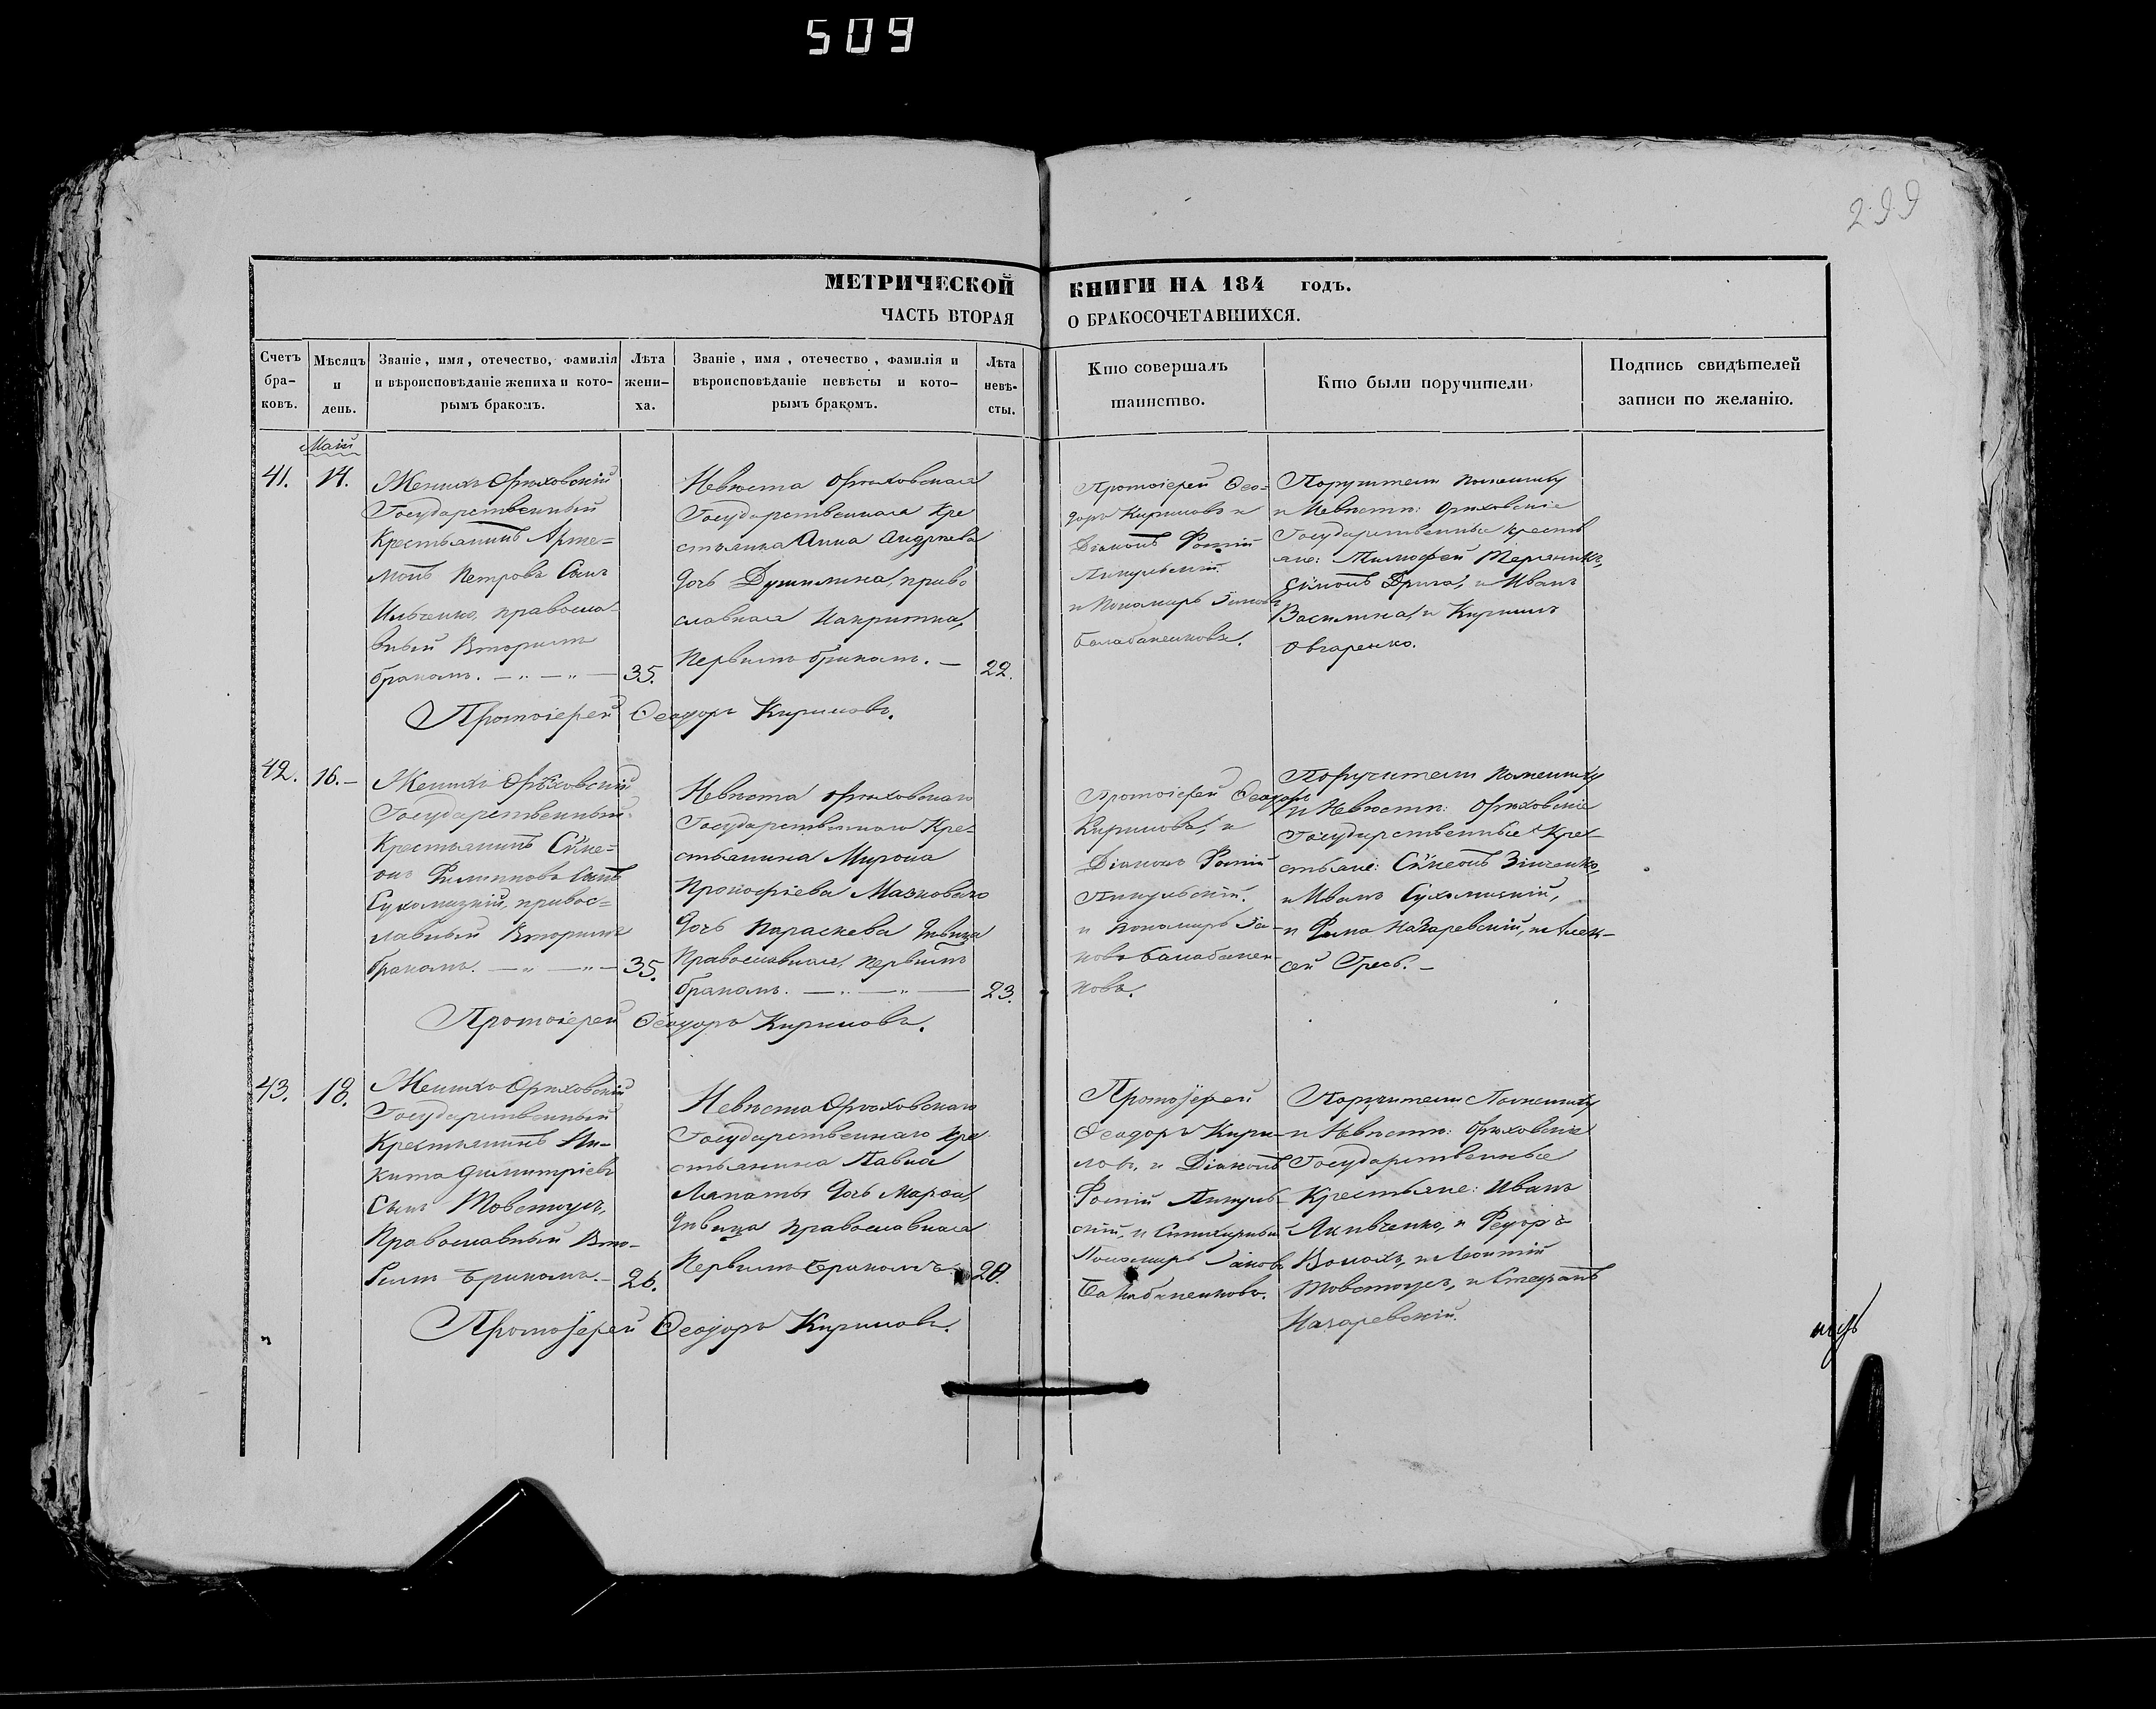 509
299
МЕТРИЧЕСКОЙ КНИГИ НА 184 годъ.
ЧАСТЬ ВТОРАЯ О БРАКОСОЧЕТАВШИХСЯ.
Счетъ бра- ковъ.
Мѣсяцъ и день.
Званіе, имя, отечество, фамилія
и вѣроисповѣданіе жениха и кото-
рымъ бракомъ.
Лѣта жени- ха.
Званіе, имя, отечество, фамилія и
вѣроисповѣданіе невѣсты и кото-
рымъ бракомъ.
Лѣта невѣ- сты.
Кто совершалъ
таинство.
Кто были поручители.
Подпись свидѣтелей
записи по желанію.
Маій
41.
14.
Женихъ Орѣховскій
Государственный
Крестьянинъ Арте=
монъ Петровъ Сынъ
Ильченко, правосла-
вный Вторымъ
бракомъ.
35.
Невѣста Орѣховская
Государственная Кре
стьянка Анна Андреева
дочь
славная
Первымъ бракомъ.
22.
Протоіерей Ѳео=
доръ Кириловъ и
Діаконъ Фотій
Пикульскій
и Пономарь
Балабаненковъ.
Поручители по жениху
и Невѣстѣ: Орѣховскіе
Государственные крестья
не: Тимофей
Сѵмонъ и Иванъ
Василина, и Кирилъ
Овчаренко.
Протоіерей Ѳеодоръ Кириловъ.
42.
16.
Женихъ Орѣховскій
Государственный
Крестьянинъ Сѵме=
онъ Филиповъ Сынъ
Сухомлиzкій, правос=
лавный Вторымъ
бракомъ.
35.
Невѣста Орѣховскаго
Государственнаго Кре-
стьянина Мирона
Прокофіева
дочь Параскева дѣвица
Православная, Первымъ
бракомъ.
23.
Протоіерей Ѳеодоръ
Кириловъ, и
Діаконъ Фотій
Пикульскій.
и Пономарь Іа-
ковъ Балабанен-
ковъ.
Поручители по жениху
и Невѣстѣ: Орѣховскіе
Государственные Кре-
стьяне: Сѵмеонъ Зинченко,
и Иванъ
и Назаревскій, и Алек-
сей
Протоіерей Ѳеодоръ Кириловъ.
43.
18.
Женихъ Орѣховскій
Государственный
Крестьянинъ Ни-
кита Димитріевъ
Сынъ Товстоусъ,
Православный Вто-
рымъ Бракомъ.
26.
Невѣста Орѣховскаго
Государственнаго Кре
стьянина Павла
Лапаты дочь
дѣвица Православная
Первымъ Бракомъ
20.
Протоіерей
Ѳеодоръ Кири-
ловъ, и Діаконъ
Фотій Пикуль-
скій, и
Пономарь Іаковъ
Балабаненковъ.
Поручители По жениху
и Невѣстѣ: Орѣховскіе
Государственные
Крестьяне: Иванъ
и Федоръ
и Леонтій
Товстоусъ, и Стефанъ
Назаревскій.
Протоіерей Ѳеодоръ Кириловъ.